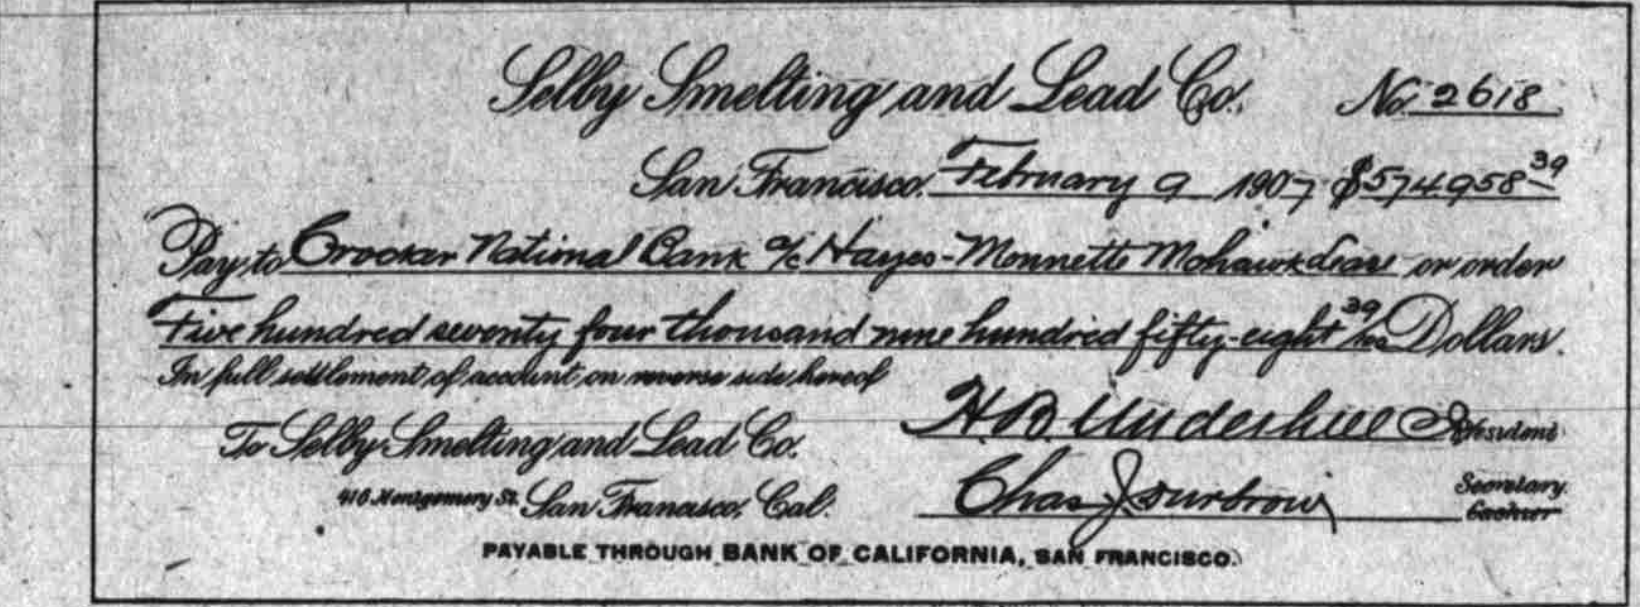 Selby Smelting and Lead Co. No. 2618
San Francisco. February 9 1907 $574958 39
Pay to Crocker National Bank a/c Hayes-Monnette Mohawk Lease or order
Five hundred seventy four thousand nine hundred fifty-eight 39/100 Dollars.
In full settlement of account on reverse side hereof
H.B. Underhill President
To Selby Smelting and Lead Co.
416 Montgomery St. San Francisco, Cal.
Chas J. Secretary.
Cashier
PAYABLE THROUGH BANK OF CALIFORNIA, SAN FRANCISCO.